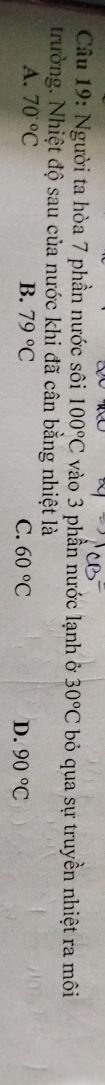 Câu 19: Người ta hòa 7 phần nước sôi 100°C vào 3 phần nước lạnh ở 30°C bỏ qua sự truyền nhiệt ra môi
trường. Nhiệt độ sau của nước khi đã cân bằng nhiệt là
A. 70 °C B. 79 °C C. 60 °C D. 90 °C